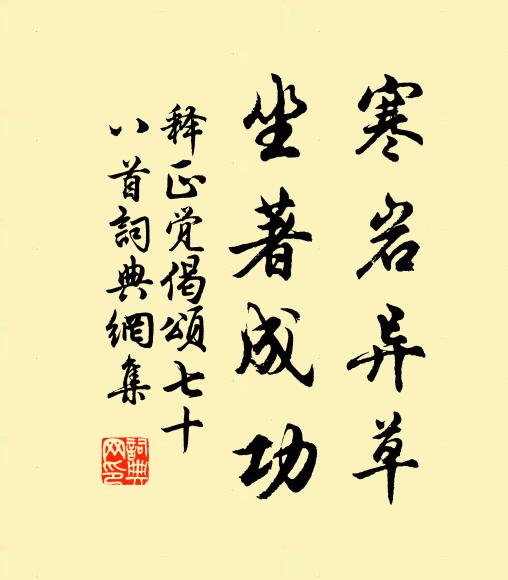 寒岩异草
坐著成功
释正觉偈頌七十
八首詞典網集
詞典网印